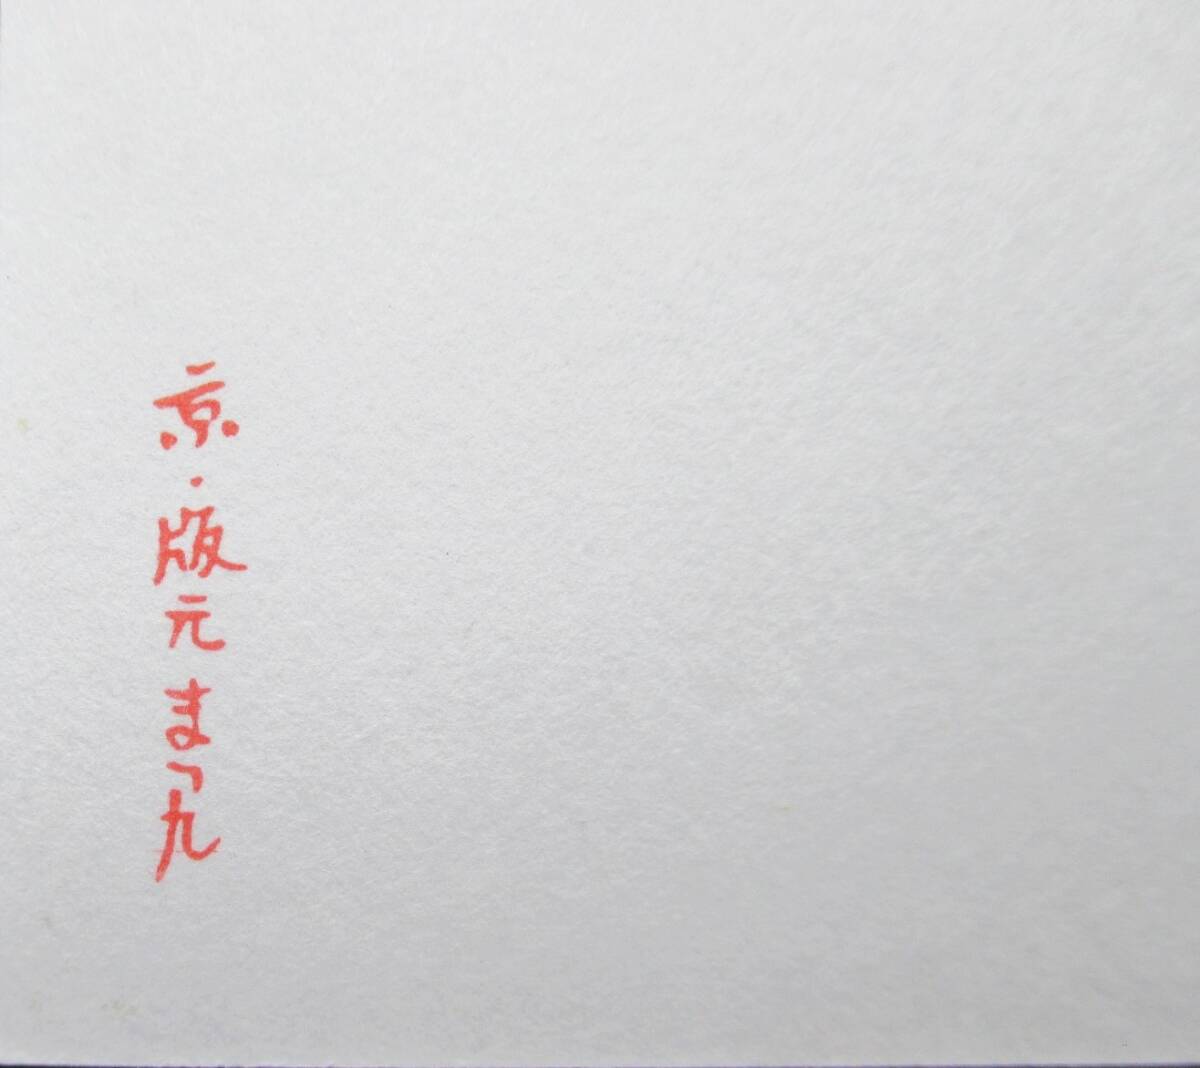 京・版元まつ九